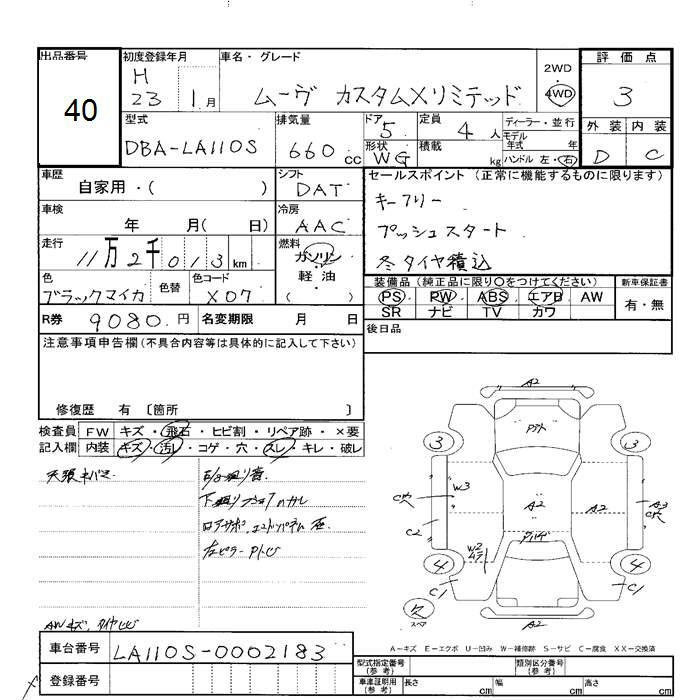 出品番号
40
初度登録年月
H
23 1月
車名・グレード
ムーヴ カスタムXリミテッド
2WD
・
4WD
評価点
3
外装 内装
D C
型式
DBA-LA110S
排気量
660cc
ドア 5
形状 WG
定員 4人
積載 kg
ディーラー・並行
モデル
年式 年
ハンドル 左・右
車歴
自家用・( )
シフト
DAT
車検
年 月( 日)
冷房
AAC
走行
11万2千013km
燃料
ガソリン
・
軽油
( )
色
ブラックマイカ
色替
色コード
X07
R券 9080円
名変期限 月 日
セールスポイント (正常に機能するものに限ります)
キーフリー
プッシュスタート
冬タイヤ積込
装備品(純正品に限り○をつけてください)
PS PW ABS エアB AW
SR ナビ TV カワ
新車保証書
有・無
後日品
注意事項申告欄(不具合内容等は具体的に記入して下さい)
修復歴 有 〔箇所 〕
検査員
記入欄
FW キズ・飛石・ヒビ割・リペア跡・×要
内装 キズ・汚レ・コゲ・穴・スレ・キレ・破レ
A2
3
3
W3
A2
A2
A3
C2
W2
4
4
C1
C1
A2
A-キズ E-エクボ U-凹み W-補修跡 S-サビ C-腐食 XX-交換済
車台番号 LA110S-0002183
登録番号
型式指定番号
(参考)
類別区分番号
(参考)
車庫証明用
(参考)
長さ cm 幅 cm 高さ cm